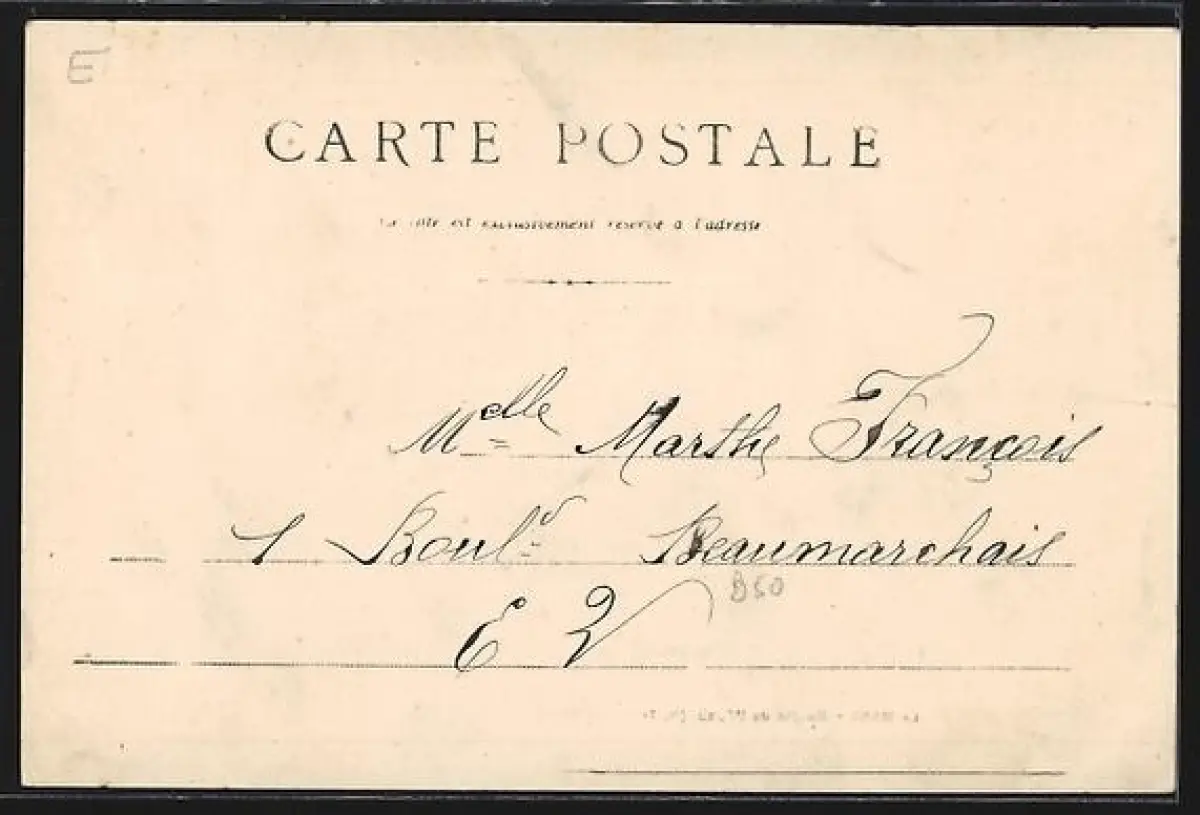 E
CARTE POSTALE
Ce côté est exclusivement réservé à l'adresse
Melle Marthe François
1 Boulᵈ Beaumarchais
B50
E V